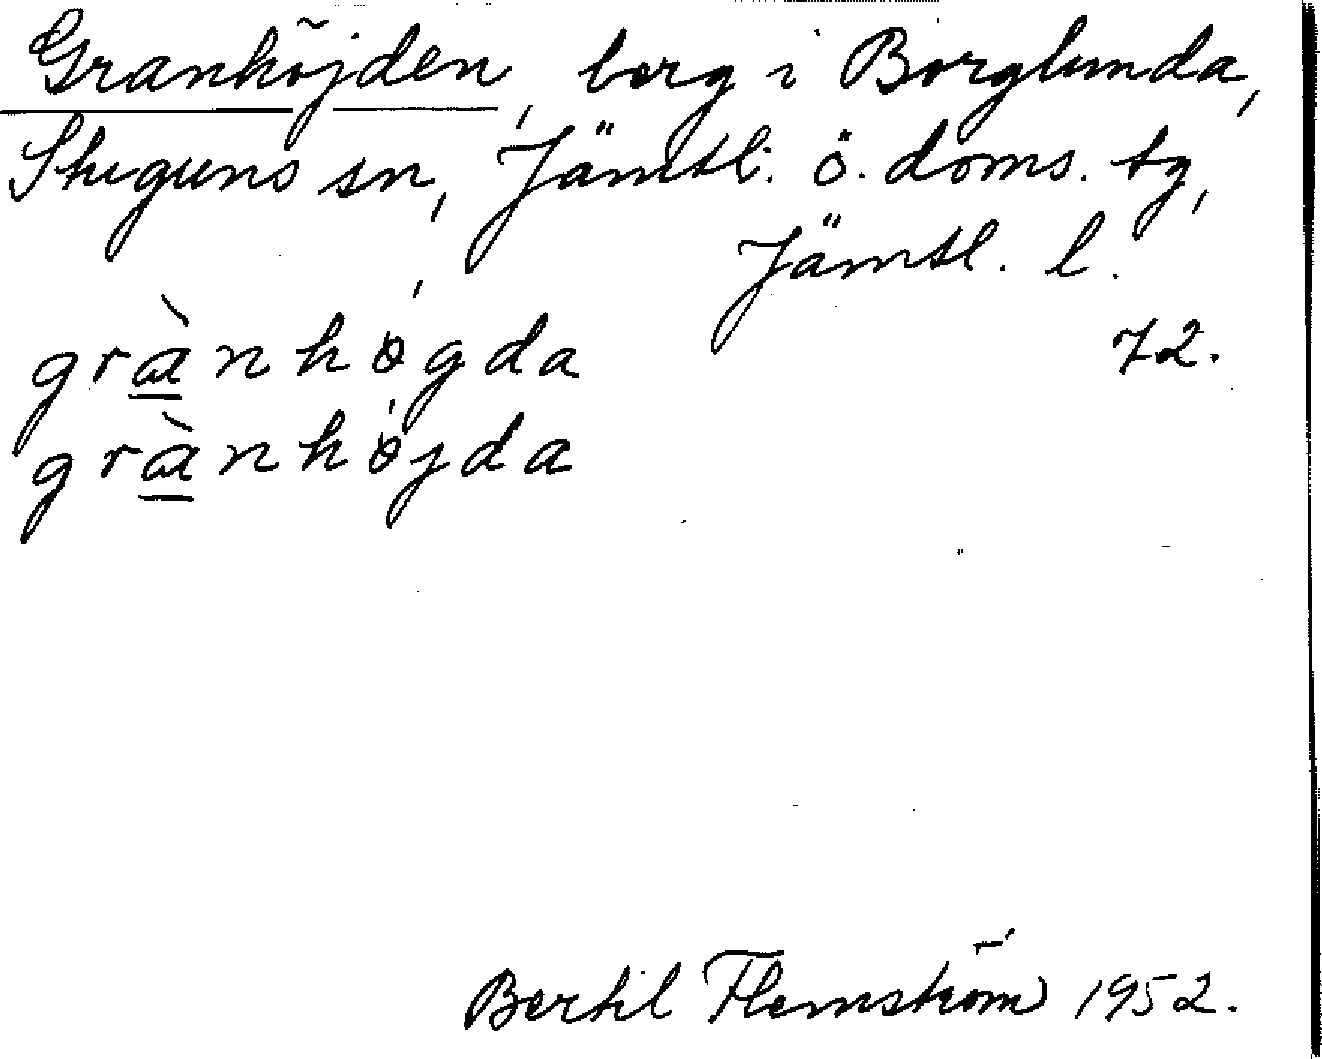 Granhöjden, berg i Borglunda,
Stuguns sn, Jämtl. ö. doms. tg,
Jämtl. l.
grànhøgda 72.
grànhøjda
Bertil Flemström 1952.